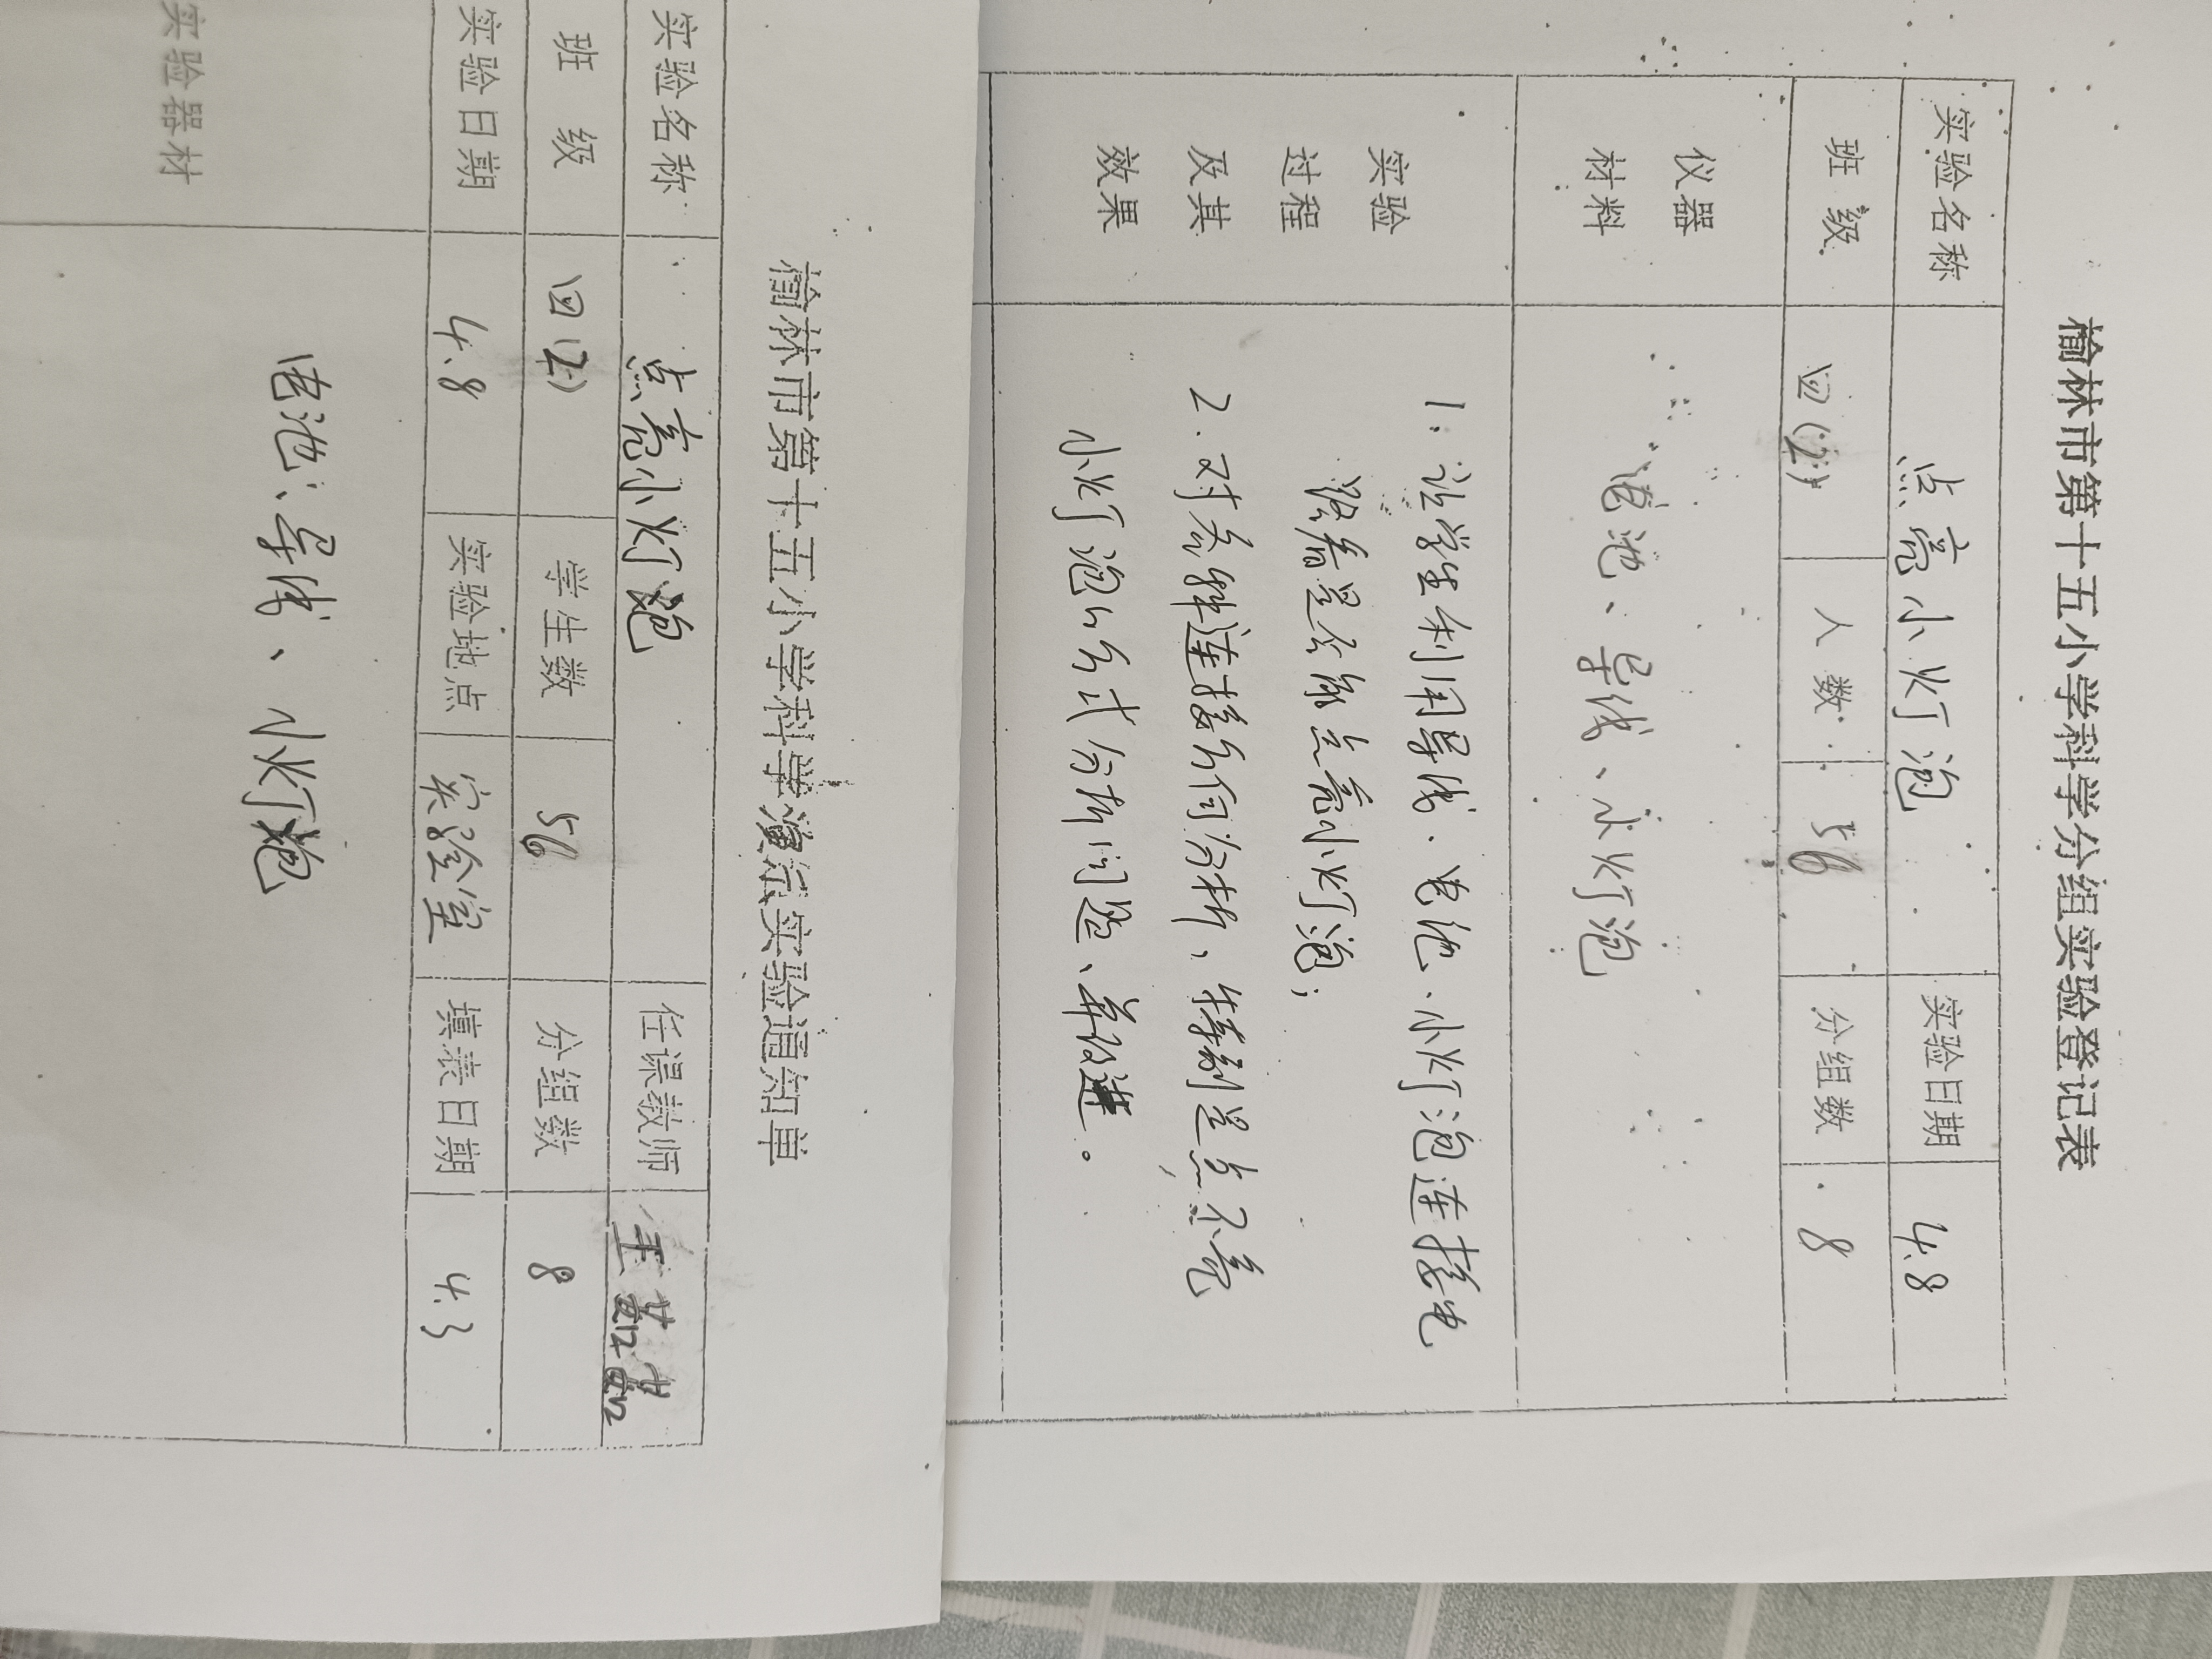 榆林市第十五小学科学分组实验登记表
实验名称 点亮小灯泡 实验日期 4.8
班级 四(2) 人数 56 分组数 8
仪器材料 电池、导线、小灯泡
实验过程及其效果
1. 让学生利用导线、电池、小灯泡连接电
路看是否能点亮小灯泡;
2. 对各种连接进行分析,特别是点不亮
小灯泡的方式分析问题、并改进。
榆林市第十五小学科学演示实验通知单
实验名称 点亮小灯泡 任课教师 王
班级 四(2) 学生数 56 分组数 8
实验日期 4.8 实验地点 实验室 填表日期 4.3
实验器材 电池、导线、小灯泡